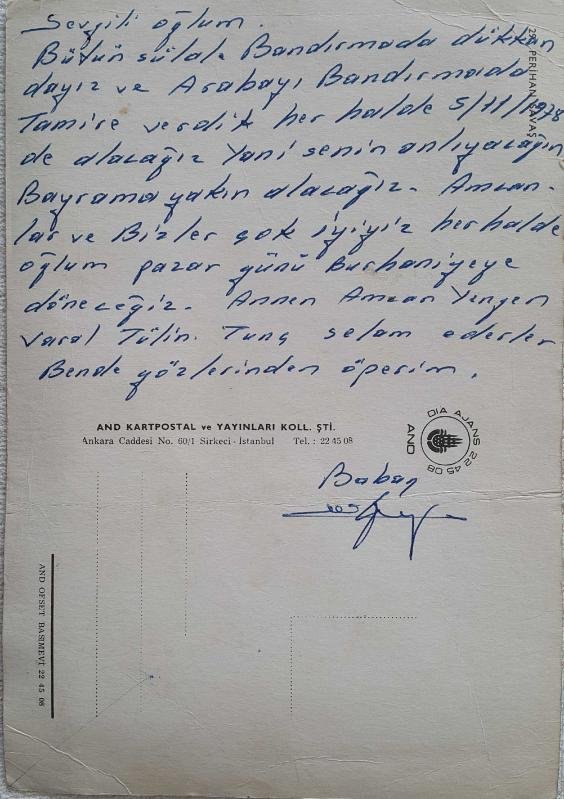 Sevgili oğlum.
Bütün sülale Bandırmada dükkan
dayız ve Arabayı Bandırmada
Tamire verdik her halde 5/11/1978
de alacağız Yani senin anlıyacağın
Bayrama yakın alacağız. Amcan-
lar ve Bizler çok iyiyiz herhalde
oğlum pazar günü Burhaniyeye
döneceğiz. Annen Amcan Yengen
Varol Tülin. Tunç selam ederler
Bende gözlerinden öperim.
PERİHAN SAVAŞ
AND KARTPOSTAL ve YAYINLARI KOLL. ŞTİ.
Ankara Caddesi No. 60/1 Sirkeci - İstanbul Tel. : 22 45 08
AND DIA AJANS 22 45 08
Baban
AND OFSET BASIMEVİ 22 45 08